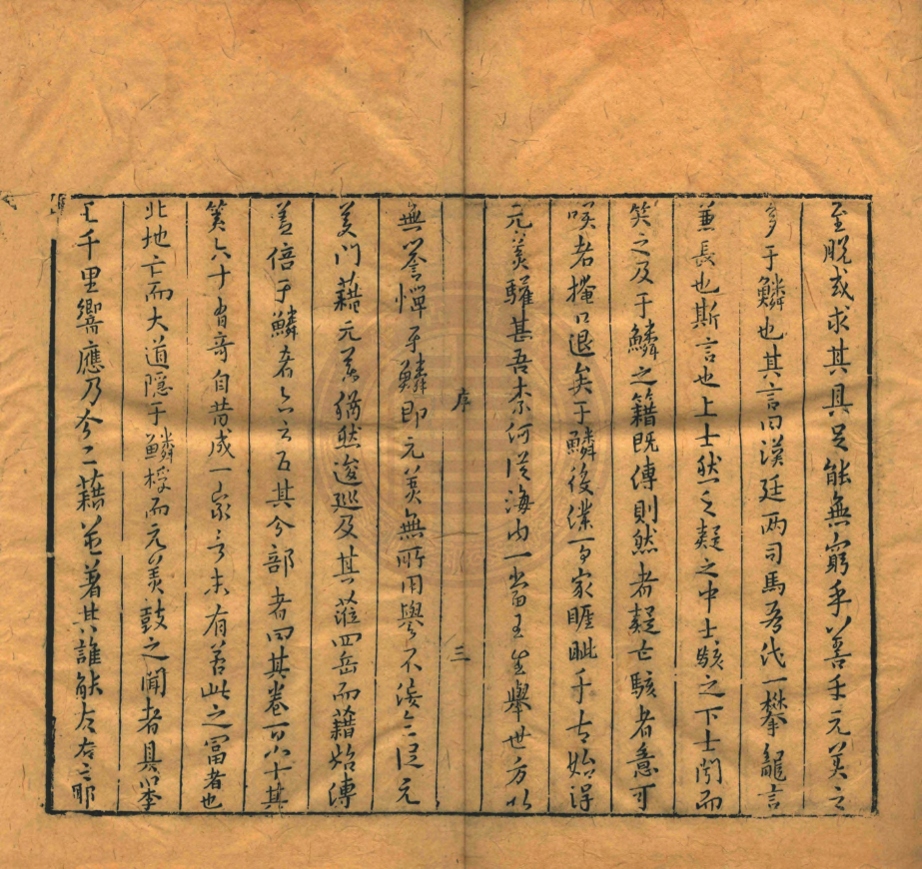 至脫或求其具足能無窮乎善乎元美之
多于鱗也其言曰漢廷两司馬吾代一攀龍言
兼長也斯言也上士然之疑之中士駭之下士閧而
笑之及于鱗之籍既傳則然者疑亡駭者意可
唉者掩口退矣于鱗後僕一家睚眦乎七始得
元美驩甚吾柰何従海内一當王生舉世方以
序
三
無譽憚于鱗即元美無所用譽不佞令従元
美門藉元美猶然逡巡及其蒞四岳而藉始傳
盖倍于鱗者六云百其今部者四其卷一百八十其
筴六十有奇自昔成一家言未有若此之冨者也
北地亡而大道隱于鱗桴而元美鼓之聞者具舉
千里響應乃今二藉並著其誰能左右之耶